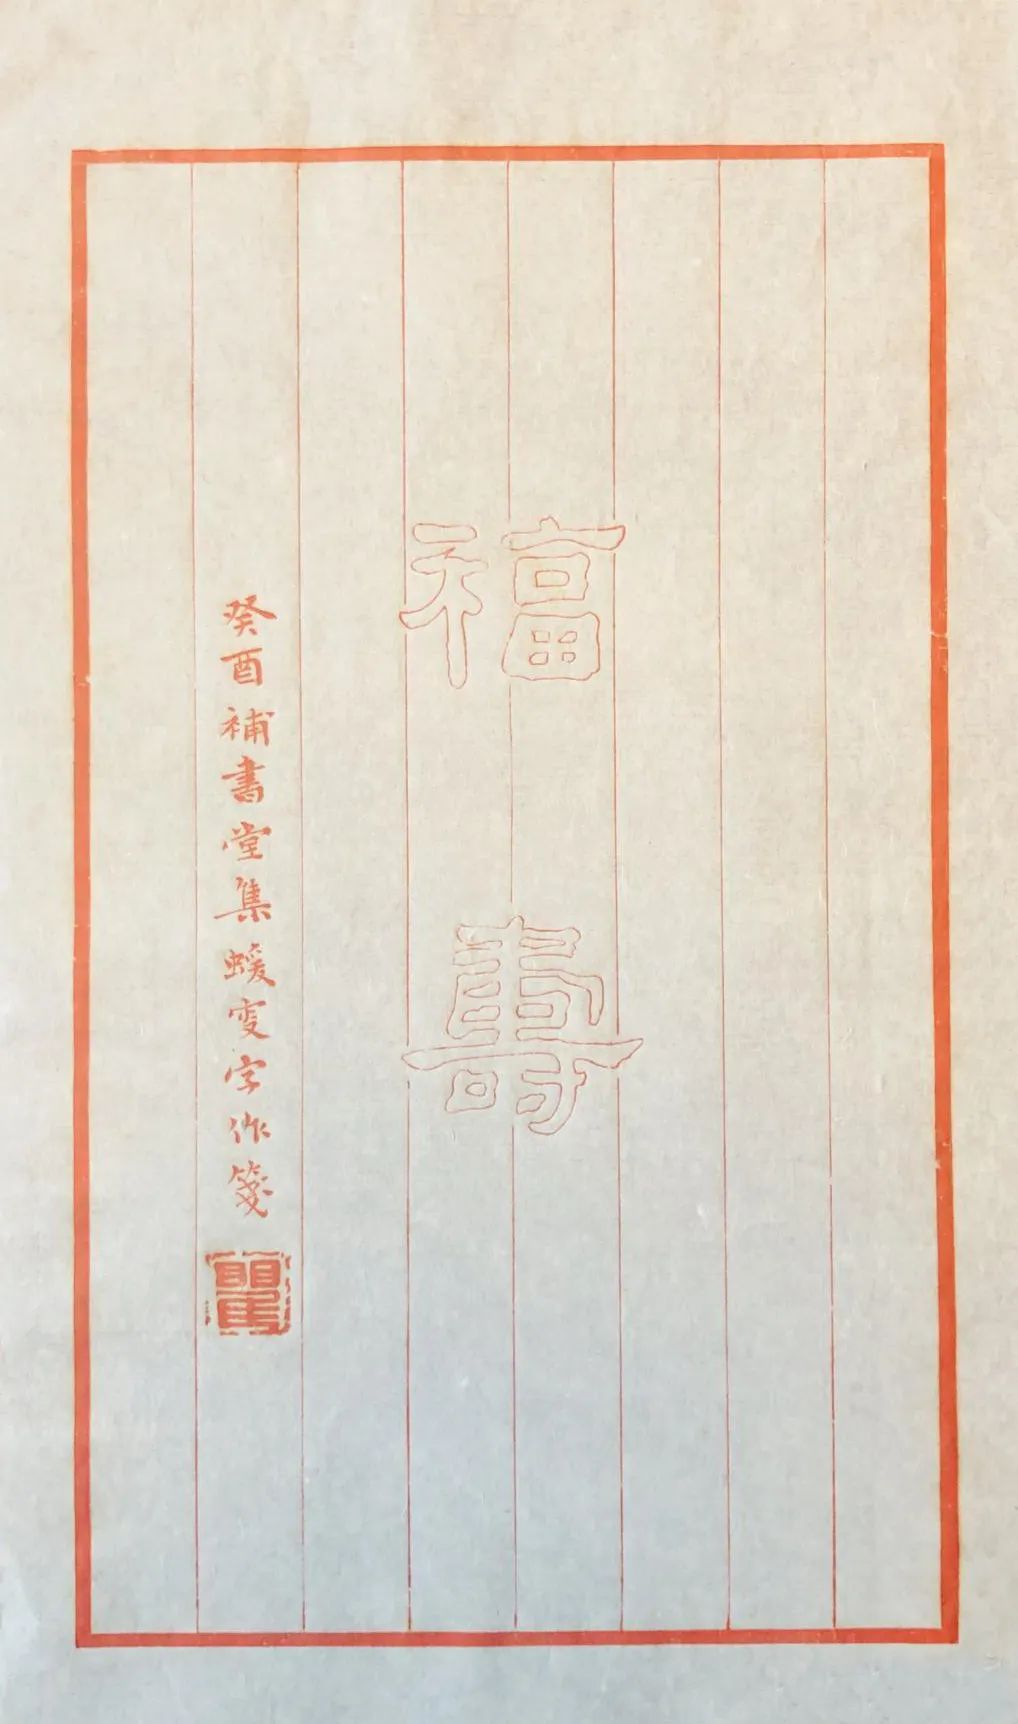 福壽
癸酉補書堂集蝯叟字作箋